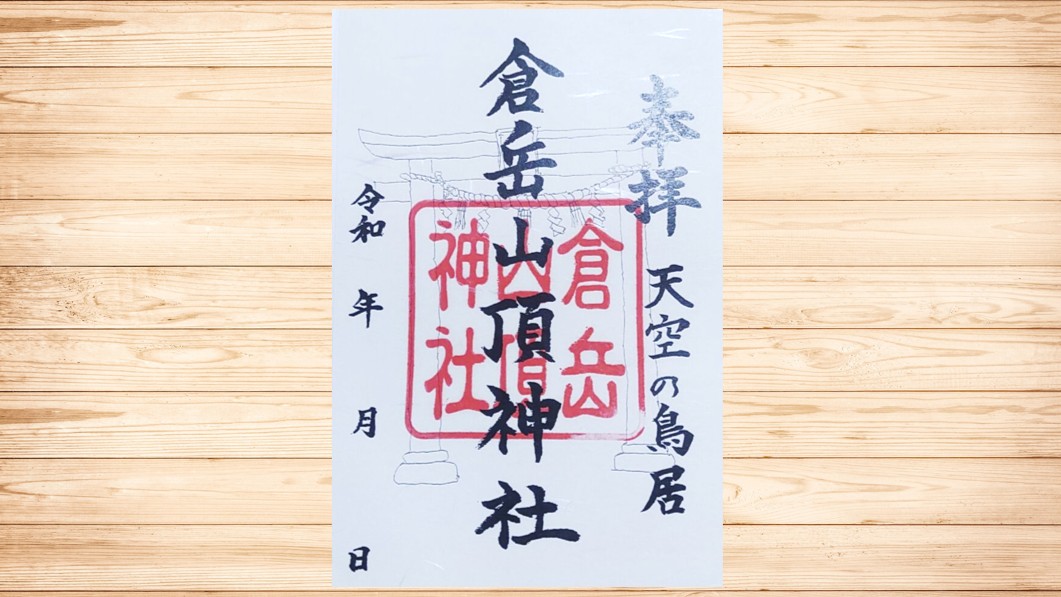 奉拝 天空の鳥居
倉岳山頂神社
倉岳
山頂
神社
令和 年 月 日